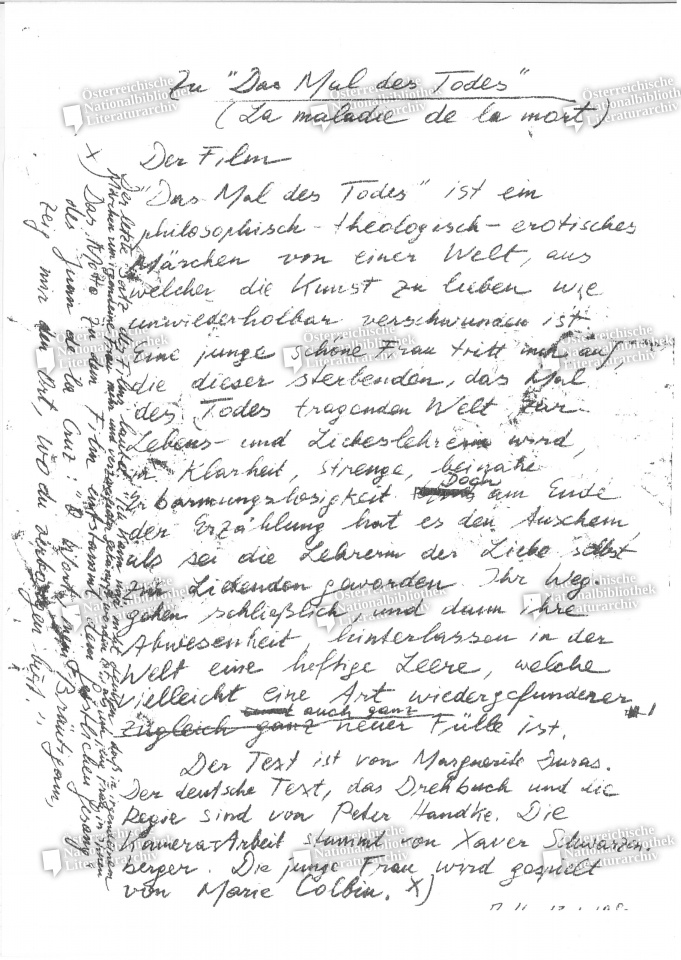 Zu "Das Mal des Todes"
(La maladie de la mort)
Der Film
"Das Mal des Todes" ist ein
philosophisch-theologisch-erotisches
Märchen von einer Welt, aus
welcher die Kunst zu lieben wie
unwiederholbar verschwunden ist
Eine junge schöne Frau tritt auf,
die dieser sterbenden, das Mal
des Todes tragenden Welt zur
Lebens- und Liebeslehrerin wird,
in Klarheit, Strenge, beinahe
Erbarmungslosigkeit Doch am Ende
der Erzählung hat es den Anschein,
als sei die Lehrerin der Liebe selbst
zur Liebenden geworden. Ihr Weg-
gehen schließlich, und dann ihre
Abwesenheit, hinterlassen in der
Welt eine heftige Leere, welche
vielleicht eine Art wiedergefundener,
auch ganz
zugleich ganz neuer Fülle ist.
Der Text ist von Marguerite Duras.
Der deutsche Text, das Drehbuch und die
Regie sind von Peter Handke. Die
Kamera-Arbeit stammt von Xaver Schwarzen-
berger. Die junge Frau wird gespielt
von Marie Colbin. X)
X) Das Motto zu dem Film entstammt dem "Geistlichen Gesang"
des Juan de la Cruz: "O Wort, mein Bräutigam,
zeig mir den Ort, wo du verborgen bist."
Der letzte Satz des Films lautet:
Österreichische
Nationalbibliothek
Literaturarchiv